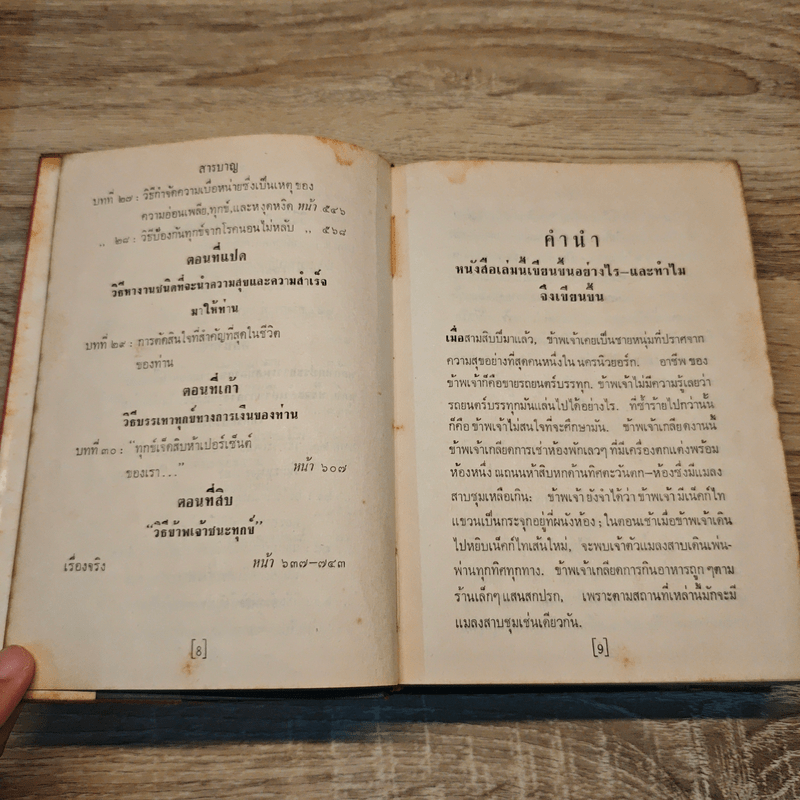 สารบาญ
บทที่ ๒๗ : วิธีกำจัดความเบื่อหน่ายซึ่งเป็นเหตุ ของ
ความอ่อนเพลีย,ทุกข์,และหงุดหงิด หน้า ๕๔๖
,, ๒๘ : วิธีป้องกันทุกข์จากโรคนอนไม่หลับ ,, ๕๖๘
ตอนที่แปด
วิธีหางานชนิดที่จะนำความสุขและความสำเร็จ
มาให้ท่าน
บทที่ ๒๙ : การตัดสินใจที่สำคัญที่สุดในชีวิต
ของท่าน
ตอนที่เก้า
วิธีบรรเทาทุกข์ทางการเงินของท่าน
บทที่ ๓๐ : "ทุกข์เจ็ดสิบห้าเปอร์เซ็นต์
ของเรา..." หน้า ๖๐๗
ตอนที่สิบ
"วิธีข้าพเจ้าชนะทุกข์"
เรื่องจริง หน้า ๖๓๗–๗๔๓
[8]
คำนำ
หนังสือเล่มนี้เขียนขึ้นอย่างไร—และทำไม
จึงเขียนขึ้น
เมื่อสามสิบปีมาแล้ว, ข้าพเจ้าเคยเป็นชายหนุ่มที่ปราศจาก
ความสุขอย่างที่สุดคนหนึ่งใน นครนิวยอร์ก. อาชีพ ของ
ข้าพเจ้าก็คือขายรถยนต์บรรทุก. ข้าพเจ้าไม่มีความรู้เลยว่า
รถยนต์บรรทุกมันแล่นไปได้อย่างไร. ที่ซ้ำร้ายไปกว่านั้น
ก็คือ ข้าพเจ้าไม่สนใจที่จะศึกษามัน. ข้าพเจ้าเกลียดงานนี้
ข้าพเจ้าเกลียดการเช่าห้องพักเลวๆ ที่มีเครื่องตกแต่งพร้อม
ห้องหนึ่ง ณถนนห้าสิบหกด้านทิศตะวันตก–ห้องซึ่งมีแมลง
สาบชุมเหลือเกิน: ข้าพเจ้า ยังจำได้ว่า ข้าพเจ้า มีเน็คก์ไท
แขวนเป็นกระจุกอยู่ที่ผนังห้อง ; ในตอนเช้าเมื่อข้าพเจ้าเดิน
ไปหยิบเน็คก์ไทเส้นใหม่, จะพบเจ้าตัวแมลงสาบเดินเพ่น-
พ่านทุกทิศทุกทาง. ข้าพเจ้าเกลียดการกินอาหารถูก ๆตาม
ร้านเล็กๆ แสนสกปรก, เพราะตามสถานที่เหล่านี้มักจะมี
แมลงสาบชุมเช่นเดียวกัน.
[9]